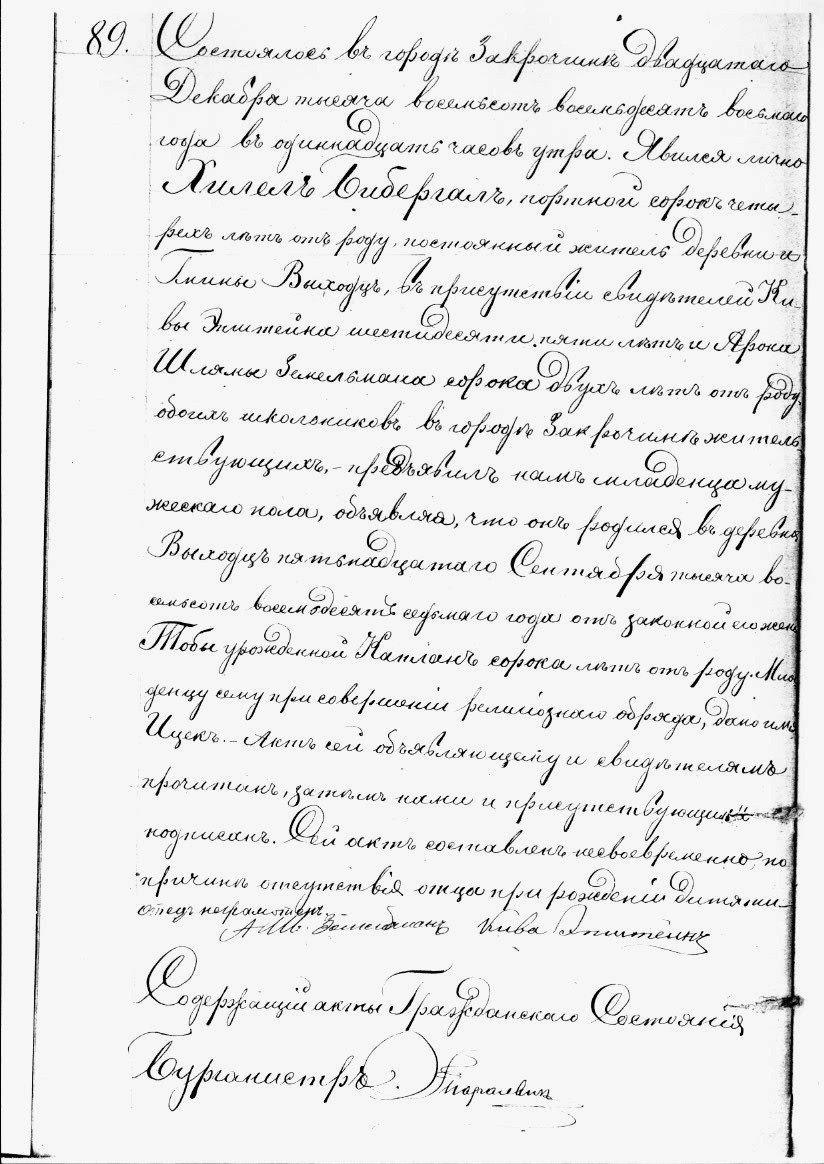 89. Состоялось въ городѣ Закрочимѣ двадцатаго
Декабря тысяча восемьсотъ восемьдесятъ восьмаго
года въ одиннадцать часовъ утра. Явился лично
Хилель Бибергалъ, портной сорокъ четы-
рехъ лѣтъ отъ роду, постоянный житель деревни и
Гмины Выходцъ, въ присутствіи свидѣтелей Ки-
вы Эпштейна шестидесяти пяти лѣтъ и Арона
Шлямы Земельмана сорока двухъ лѣтъ отъ роду,
обоихъ школьниковъ въ городѣ Закрочимѣ житель
ствующихъ, – предъявилъ намъ младенца му-
жескаго пола, объявляя, что онъ родился въ деревнѣ
Выходцъ пятьнадцатаго Сентября тысяча во-
семьсотъ восемьдесятъ седьмаго года отъ законной его жены
Тобы урожденной Капланъ сорока лѣтъ отъ роду. Мла
денцу сему при совершеніи религіознаго обряда, дано имя
Ицекъ. – Актъ сей объявляющему и свидѣтелямъ
прочитанъ, затѣмъ нами и присутствующими
подписанъ. Сей актъ составленъ несвоевременно, по
причинѣ отсутствія отца при рожденіи дитяти –
Отецъ неграмотенъ.
А Ш. Земельманъ Кива Эпштейнъ
Содержащій акты Гражданскаго Состоянія
Бургомистръ.